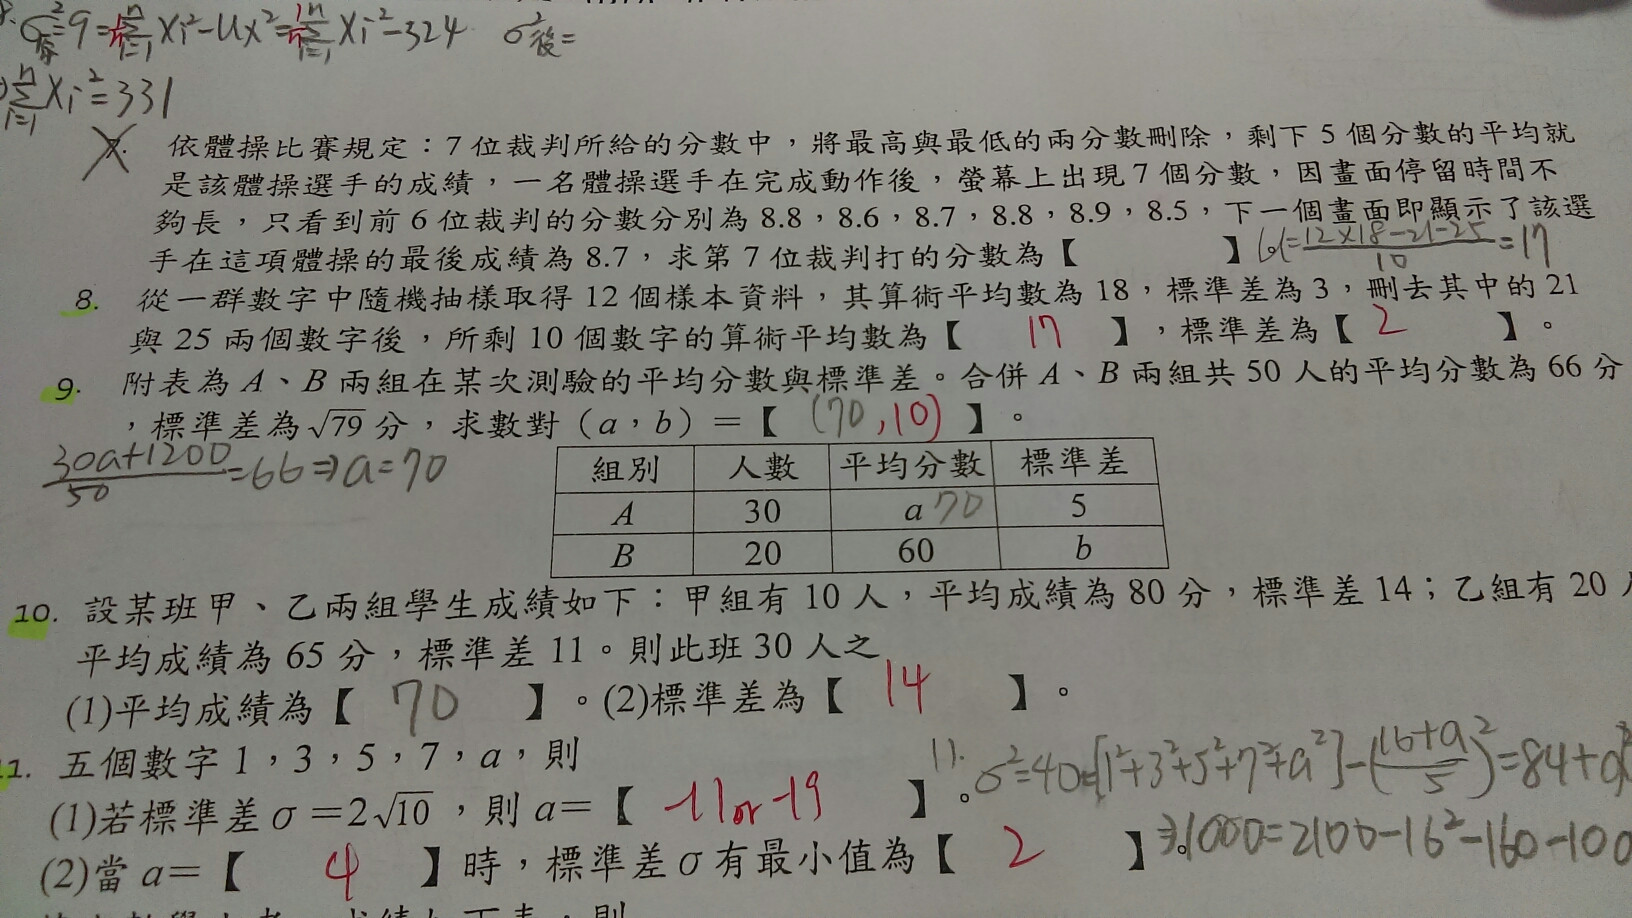 σ²原=9=1/n Σ(i=1,n) Xi²-Ux²=1/n Σ(i=1,n) Xi²-324 σ²後=
Σ(i=1,n) Xi²=331
7. 依體操比賽規定：7 位裁判所給的分數中，將最高與最低的兩分數刪除，剩下 5 個分數的平均就
是該體操選手的成績，一名體操選手在完成動作後，螢幕上出現 7 個分數，因畫面停留時間不
夠長，只看到前 6 位裁判的分數分別為 8.8，8.6，8.7，8.8，8.9，8.5，下一個畫面即顯示了該選
手在這項體操的最後成績為 8.7，求第 7 位裁判打的分數為【 】 (12×18-21-25)/10=17
8. 從一群數字中隨機抽樣取得 12 個樣本資料，其算術平均數為 18，標準差為 3，刪去其中的 21
與 25 兩個數字後，所剩 10 個數字的算術平均數為【 17 】，標準差為【 2 】。
9. 附表為 A、B 兩組在某次測驗的平均分數與標準差。合併 A、B 兩組共 50 人的平均分數為 66 分
，標準差為√79 分，求數對（a，b）＝【 (70,10) 】。
(30a+1200)/50=66⇒a=70
組別 人數 平均分數 標準差
A 30 a 70 5
B 20 60 b
10. 設某班甲、乙兩組學生成績如下：甲組有 10 人，平均成績為 80 分，標準差 14；乙組有 20
平均成績為 65 分，標準差 11。則此班 30 人之
(1)平均成績為【 70 】。(2)標準差為【 14 】。
11. 五個數字 1，3，5，7，a，則
(1)若標準差 σ＝2√10，則 a＝【 -11or19 】。
11. σ²=40=[1²+3²+5²+7²+a²]-((16+a)/5)²=84+a²
(2)當 a＝【 4 】時，標準差 σ 有最小值為【 2 】
⇒1000=2100-16²-160-100